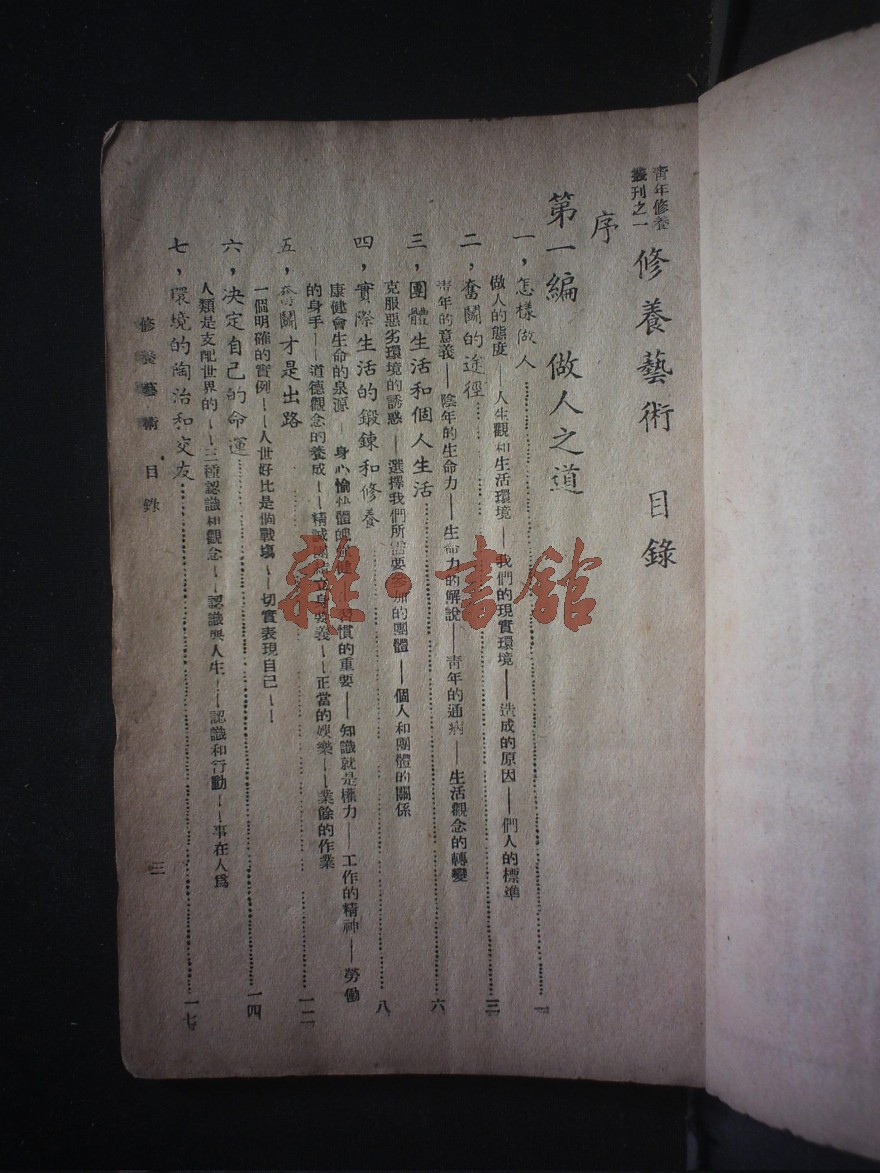 青年修養
叢刊之一
修養藝術 目錄
序
第一編 做人之道
一，怎樣做人…………一
做人的態度——人生觀和生活環境——我們的現實環境——造成的原因——們人的標準
二，奮鬭的途徑…………三
青年的意義——陰年的生命力——生命力的解說——青年的通病——生活觀念的轉變
三，團體生活和個人生活…………六
克服惡劣環境的誘惑——選擇我們所需要參加的團體——個人和團體的關係
四，實際生活的鍛鍊和修養…………八
康健會生命的泉源——身心愉快體魄強健——習慣的重要——知識就是權力——工作的精神——勞働
的身手——道德觀念的養成——精誠團結立身要義——正當的娛樂——業餘的作業
五，奮鬭才是出路…………一二
一個明確的實例——人世好比是個戰場——切實表現自己——
六，決定自己的命運…………一四
人類是支配世界的——三種認識和觀念——認識與人生——認識和行動——事在人為
七，環境的陶冶和交友…………一七
修養藝術 目錄
三
雜·書館